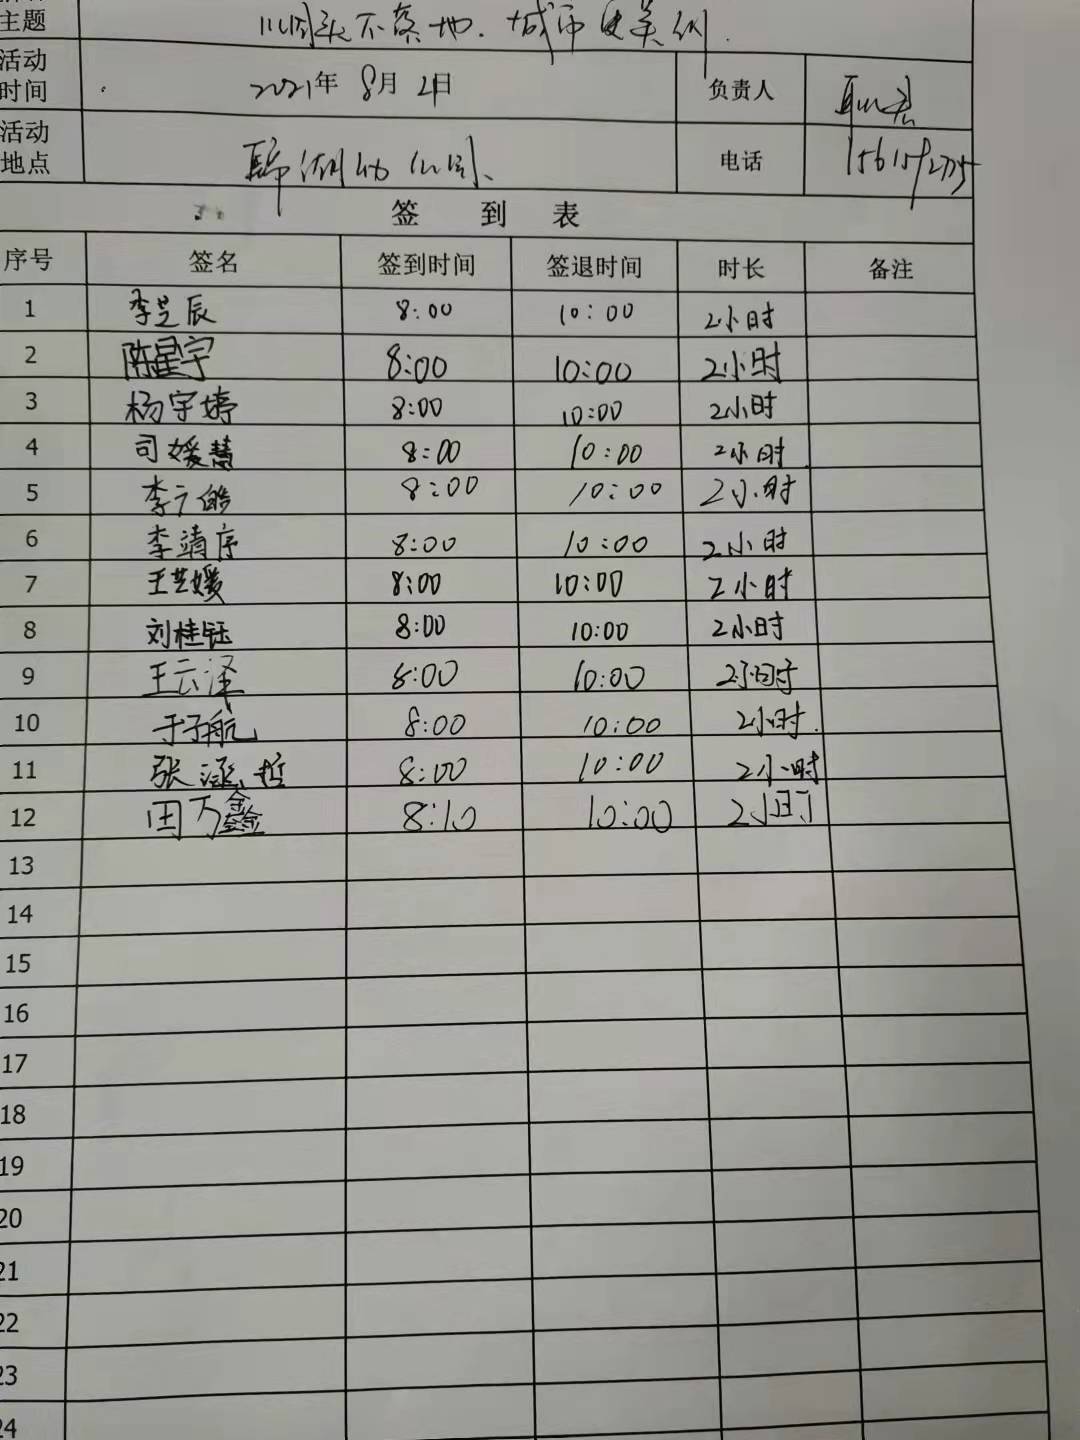 主题 烟头不落地.城市更美丽.
活动时间 2021年 8月 4日 负责人
活动地点 电话
签 到 表
序号 签名 签到时间 签退时间 时长 备注
1 李芝辰 8:00 10:00 2小时
2 陈星宇 8:00 10:00 2小时
3 杨宇婷 8:00 10:00 2小时
4 司媛慧 8:00 10:00 2小时
5 李广皓 8:00 10:00 2小时
6 李靖序 8:00 10:00 2小时
7 王艺媛 8:00 10:00 2小时
8 刘桂钰 8:00 10:00 2小时
9 王云泽 8:00 10:00 2小时
10 于子航 8:00 10:00 2小时.
11 张涵哲 8:00 10:00 2小时
12 田万鑫 8:10 10:00 2小时
13
14
15
16
17
18
19
20
21
22
23
24